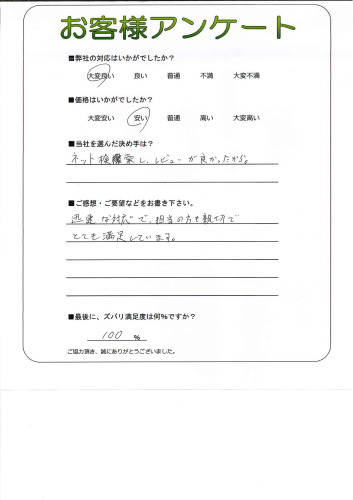 お客様アンケート
■弊社の対応はいかがでしたか？
大変良い 良い 普通 不満 大変不満
■価格はいかがでしたか？
大変安い 安い 普通 高い 大変高い
■当社を選んだ決め手は？
ネット検索し、レビューが良かったから。
■ご感想・ご要望などをお書き下さい。
迅速な対応で、担当の方も親切で
とても満足しています。
■最後に、ズバリ満足度は何%ですか？
100 %
ご協力頂き、誠にありがとうございました。